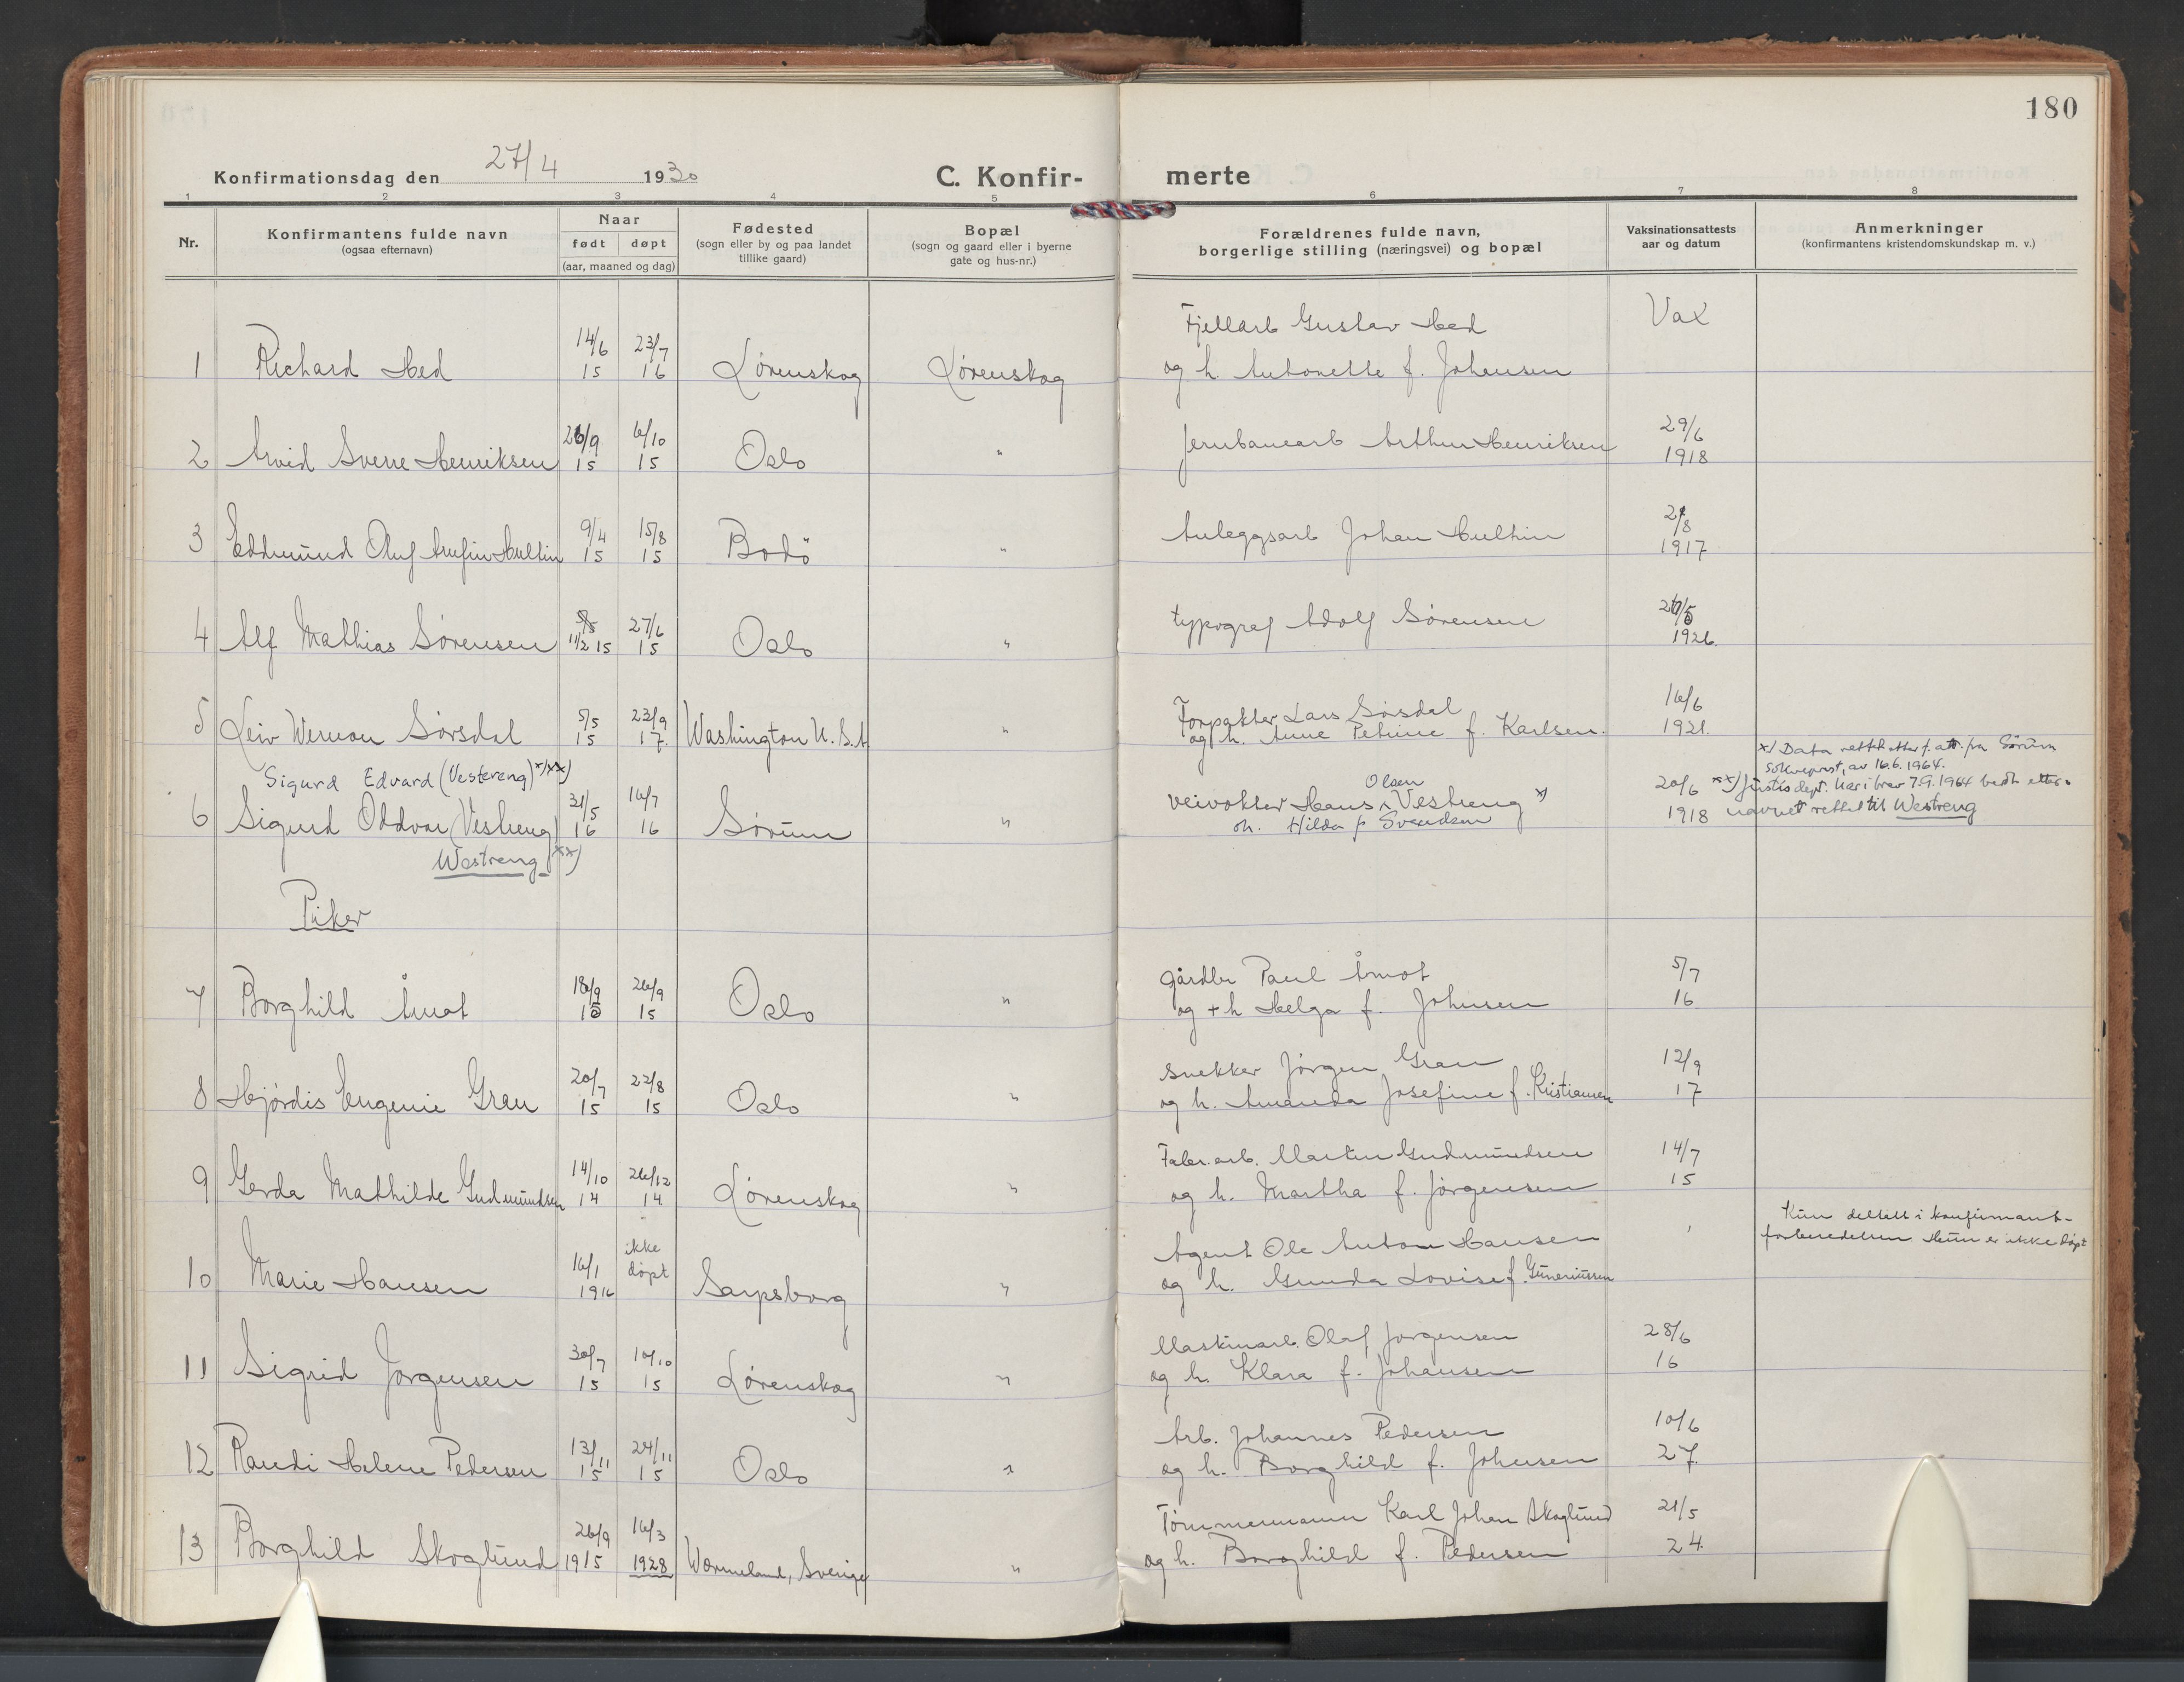 180
Konfirmationsdag den 27/4 1930
C. Konfir-
merte
1 2 3 4 5 6 7 8
Nr.
Konfirmantens fulde navn
(ogsaa efternavn)
Naar
født døpt
(aar, maaned og dag)
Fødested
(sogn eller by og paa landet
tillike gaard)
Bopæl
(sogn og gaard eller i byerne
gate og hus-nr.)
Forældrenes fulde navn,
borgerlige stilling (næringsvei) og bopæl
Vaksinationsattests
aar og datum
Anmerkninger
(konfirmantens kristendomskundskap m. v.)
14/6 23/7 Fjellarb Gustav Hed Vax
1 Richard Hed 15 16 Lørenskog Lørenskog og h. Antonette f. Johansen
26/9 6/10 29/6
2 Arvid Sverre Henriksen 15 15 Oslo " Jernbanearb Arthur Henriksen 1918
9/4 15/8
3 Eddmund Oluf Arnfin Hultin 15 15 Bodö " Anleggsarb Johan Hultin 1917
27/6
4 Alf Mathias Sörensen 11/2 15 15 Oslo " typograf Adolf Sörensen 1926.
5/5 23/9 Forpakter Lars Sörsdal 16/6
5 Leiv Wernon Sörsdal 15 17. Washington U.S.A " og h. Anne Petrine f. Karlsen. 1921.
x) Data rettet etter f. att. fra Sörum
Sokneprest, av 16.6.1964.
Sigurd Edvard (Vestereng) x) xx)
31/5 16/7 veivokter Hans Olsen Vestreng x) 20/6 xx) Justisdept. har i brev 7.9.1964 bedt etter-
6 Sigurd Oddvar (Vestreng) 16 16 Sörum " oh. Hilda f Svendsen 1918 navnet rettet til Westreng
Westreng xx)
Piker
18/9 26/9 gårdbr Paul Åmot 5/7
7 Borghild Åmot 15 15 Oslo " og + h Helga f. Johnsen 16
20/7 22/8 snekker Jörgen Gran 12/9
8 Hjördis Eugenie Gran 15 15 Oslo " og h. Amanda Josefine f. Kristiansen 17
14/10 26/12 Fabr. arb. Martin Gudmundsen 14/7
9 Gerda Mathilde Gudmundsen 14 14 Lörenskog " og h. Martha f. Jörgensen 15
ikke Agent Ole Anton Hansen Kun deltatt i konfirmant-
16/1 døpt forberedelsen Hun er ikke döpt
10 Marie Hansen 1916 Sarpsborg " og h. Gunda Lovise f. Guneriussen
30/7 10/10 Maskinarb. Olaf Jørgensen 28/6
11 Sigrid Jørgensen 15 15 Lörenskog " og h. Klara f. Johansen 16
13/11 24/11 Arb. Johannes Pedersen 10/6
12 Randi Helene Pedersen 15 15 Oslo " og h. Borghild f. Johnsen 27.
26/9 16/3 Tömmermann Karl Johan Skoglund 21/5
13 Borghild Skoglund 1915 1928 Wermeland, Sverige " og h. Borghild f. Pedersen 24.